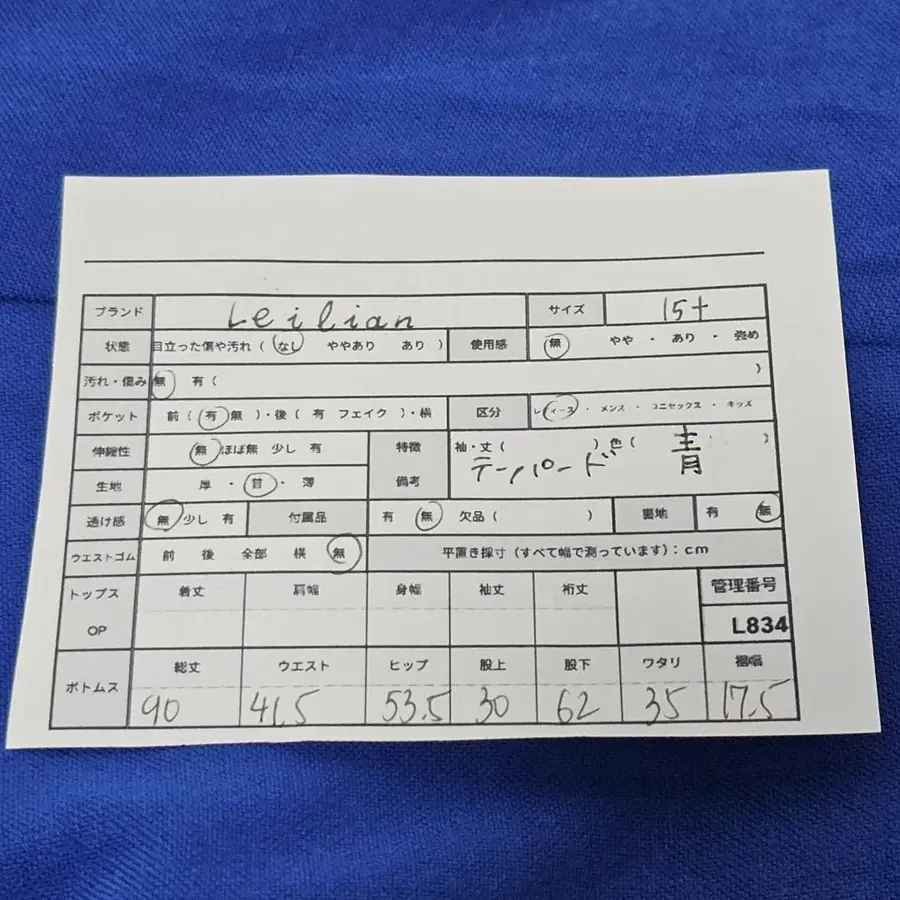 ブランド Leilian サイズ 15+
状態 目立った傷や汚れ ( なし ややあり あり ) 使用感 無 やや ・ あり ・ 強め
汚れ・傷み 無 有 ( )
ポケット 前 ( 有 無 )・後 ( 有 フェイク )・横 区分 レディース ・ メンズ ・ ユニセックス ・ キッズ
伸縮性 無 ほぼ無 少し 有 特徴 袖・丈 ( ) 色 ( 青 )
生地 厚 ・ 普 ・ 薄 備考 テーパード
透け感 無 少し 有 付属品 有 無 欠品 ( ) 裏地 有 無
ウエストゴム 前 後 全部 横 無 平置き採寸 (すべて幅で測っています) : cm
トップス 着丈 肩幅 身幅 袖丈 裄丈 管理番号
OP L834
ボトムス 総丈 ウエスト ヒップ 股上 股下 ワタリ 裾幅
90 41.5 53.5 30 62 35 17.5